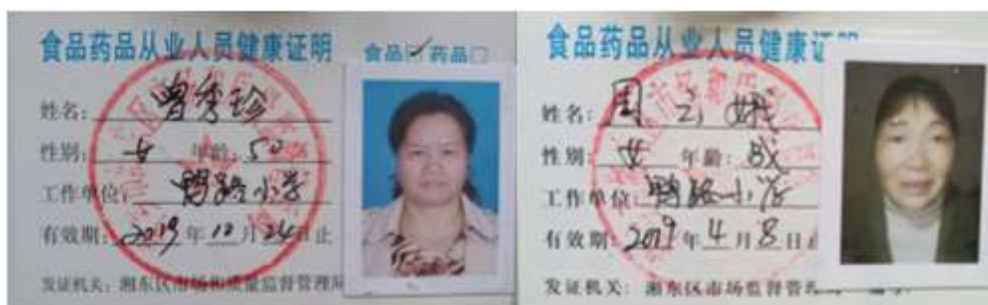 食品药品从业人员健康证明 食品☑ 药品☐
姓名: 曾秀珍
性别: 女 年龄: 50
工作单位: 鸭路小学
有效期: 2019 年 10 月 24 日止
发证机关: 湘东区市场和质量监督管理局
食品药品从业人员健康证明
姓名: 周
性别: 女 年龄:
工作单位: 鸭路小学
有效期: 2019 年 4 月 8 日止
发证机关: 湘东区市场监督管